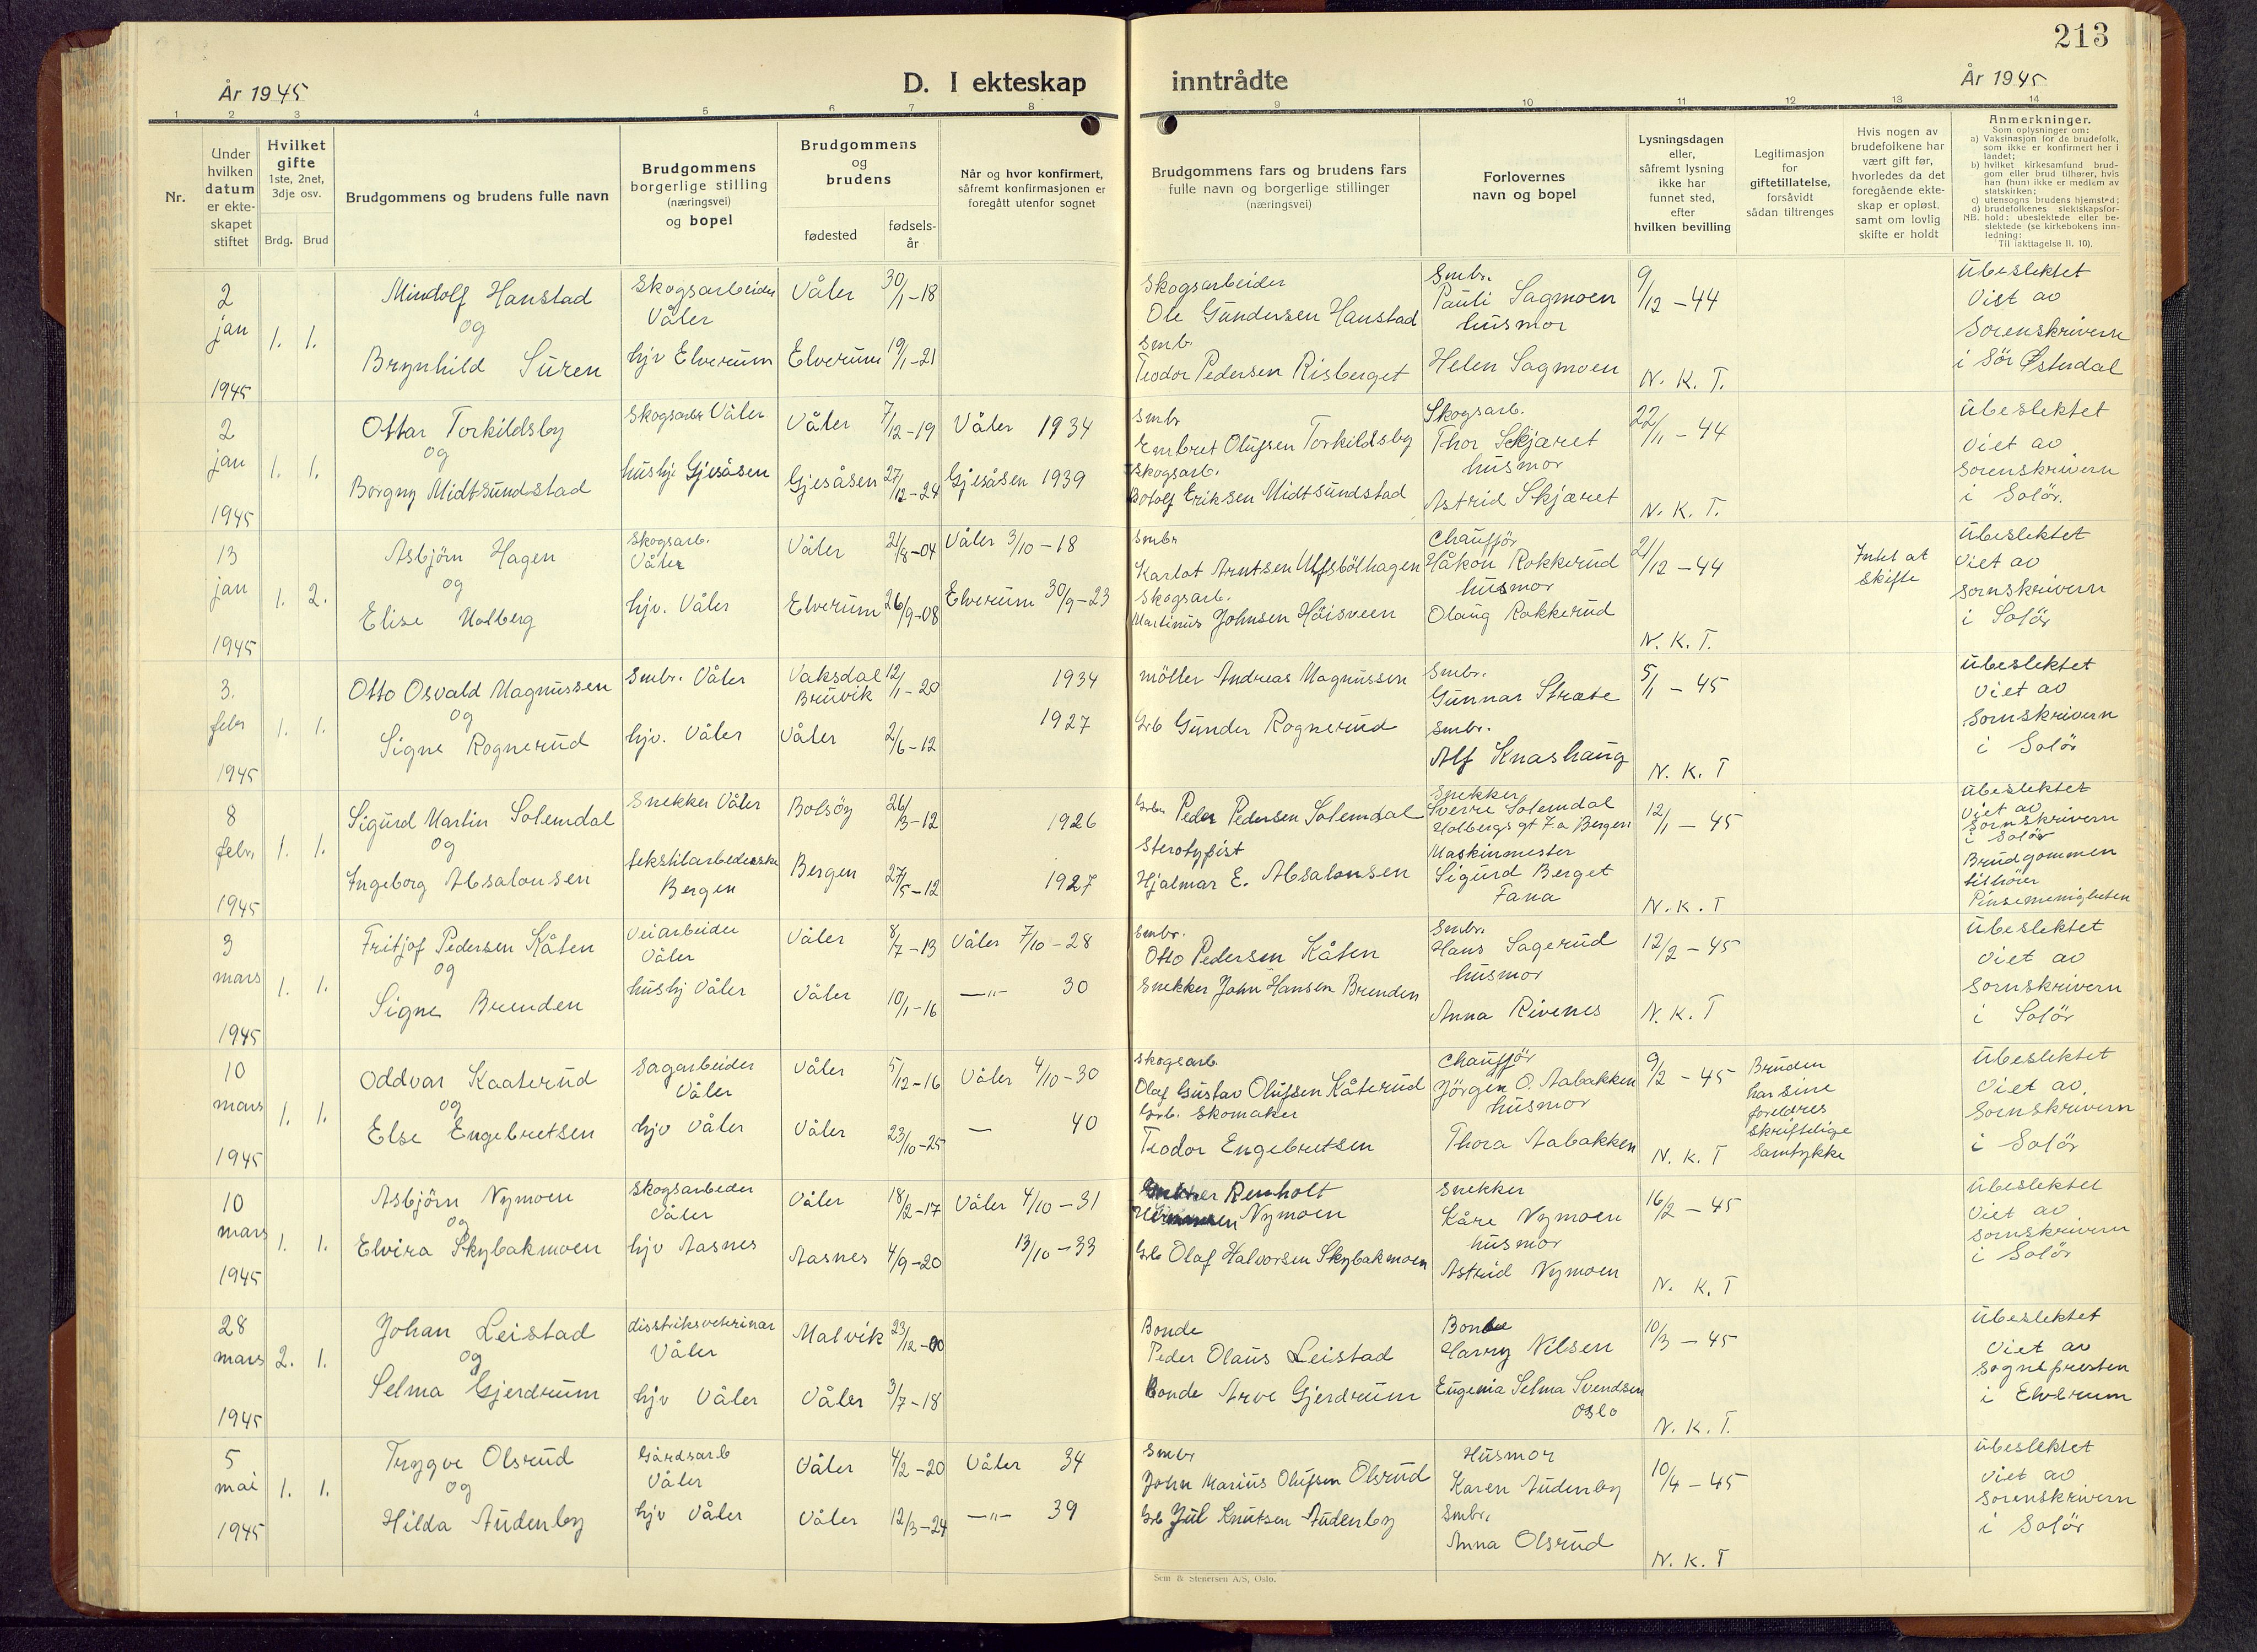 213
År 1945
D. I ekteskap inntrådte
År 1945
1 2 3 4 5 6 7 8 9 10 11 12 13 14
Nr.
Under hvilken datum er ekteskapet stiftet
Hvilket gifte 1ste, 2net, 3dje osv.
Brdg. Brud
Brudgommens og brudens fulle navn
Brudgommens borgerlige stilling (næringsvei) og bopel
Brudgommens og brudens
fødested
fødselsår
Når og hvor konfirmert, såfremt konfirmasjonen er foregått utenfor sognet
Brudgommens fars og brudens fars fulle navn og borgerlige stillinger (næringsvei)
Forlovernes navn og bopel
Lysningsdagen eller, såfremt lysning ikke har funnet sted, efter hvilken bevilling
Legitimasjon for giftetillatelse, forsåvidt sådan tiltrenges
Hvis nogen av brudefolkene har vært gift før, hvorledes da det foregående ekteskap er opløst, samt om lovlig skifte er holdt
Anmerkninger.
Som oplysninger om:
a) Vaksinasjon for de brudefolk, som ikke er konfirmert her i landet;
b) hvilket kirkesamfund brudgom eller brud tilhører, hvis han (hun) ikke er medlem av statskirken;
c) utensogns brudens hjemsted;
d) brudefolkenes slektskapsforhold: ubeslektede eller beslektede (se kirkebokens innledning:
NB.
Til iakttagelse II. 10).
2 jan 1945
1. 1.
Mindolf Hanstad
og
Brynhild Suren
Skogsarbeider Våler
hjv Elverum
Våler 30/1-18
Elverum 19/1-21
Skogsarbeider
Ole Gundersen Hanstad
Smb.
Teodor Pedersen Risberget
Smbr.
Pauli Sagmoen
husmor
Helen Sagmoen
9/12-44
N. K. T.
Ubeslektet
Viet av
Sorenskriveren
i Sör Østerdal
2 jan 1945
1. 1.
Ottar Torkildsby
og
Borgny Midtsundstad
Skogsarb Våler
hushj Gjesåsen
Våler 7/12-19
Gjesåsen 27/12-24
Våler 1934
Gjesåsen 1939
Smbr
Embret Olufsen Torkildsby
Skogsarb.
Botolf Eriksen Midtsundstad
Skogsarb.
Thor Skjæret
husmor
Astrid Skjæret
22/11-44
N. K. T.
Ubeslektet
Viet av
Sorenskrivern
i Solör.
13 jan 1945
1. 2.
Asbjörn Hagen
og
Elise Holberg
Skogsarb.
Våler
hjv. Våler
Våler 21/8-04
Elverum 26/9-08
Våler 3/10-18
Elverum 30/9-23
Smbr
Karlot Arntsen Ulfsbölhagen
Skogsarb.
Martinus Johnsen Höisveen
Chaufför
Håkon Rokkerud
husmor
Olaug Rokkerud
21/12-44
N. K. T.
Intet at
skifte
Ubeslektet
Viet av
sornskrivern
i Solör
3. febr 1945
1. 1.
Otto Osvald Magnussen
og
Signe Rognerud
Smbr. Våler
hjv. Våler
Vaksdal Bruvik 12/1-20
Våler 2/6-12
1934
1927
möller Andreas Magnussen
Grb Gunder Rognerud
Smbr.
Gunnar Stræte
Smbr.
Alf Knashaug
5/1-45
N. K. T
Ubeslektet
Viet av
Sornskrivern
i Solör
8 febr. 1945
1. 1.
Sigurd Martin Solemdal
og
Ingeborg Absalonsen
Snekker Våler
tekstilarbederske
Bergen
Bolsöy 26/3-12
Bergen 27/5-12
1926
1927
Grbr Peder Pedersen Solemdal
Sterotypist
Hjalmar E. Absalonsen
Snekker
Sverre Solemdal
Holbergs gt 7.a Bergen
Maskinmester
Sigurd Berget
Fana
12/1-45
N. K. T
Ubeslektet
Viet av
Sornskrivern
i Solör
Brudgommen
tilhörer
Pinsemenigheten
3 mars 1945
1. 1.
Fritjof Pedersen Kåten
og
Signe Brenden
Veiarbeider
Våler
hushj Våler
Våler 8/7-13
Våler 10/1-16
Våler 7/10-28
—"— 30
Smbr.
Otto Pedersen Kåten
Snekker John Hansen Brenden
Smbr.
Hans Sagerud
husmor
Anna Rivenes
12/2-45
N. K. T
Ubeslektet
Viet av
Sornskrivern
i Solör
10 mars 1945
1. 1.
Oddvar Kaaterud
og
Else Engebretsen
Sagarbeider
Våler
hjv Våler
Våler 5/12-16
Våler 23/10-25
Våler 4/10-30
— 40
Skogsarb.
Olaf Gustav Olufsen Kåterud
Grb. Skomaker
Teodor Engebretsen
Chauffør
Jörgen O. Aabakken
husmor
Thora Aabakken
9/2-45
N. K. T
Bruden
har sine
foreldres
skriftelige
Samtykke
Ubeslektet
Viet av
Sornskrivern
i Solör
10 mars 1945
1. 1.
Asbjörn Nymoen
og
Elvira Skybakmoen
Skogsarbeder
Våler
hjv Aasnes
Våler 18/2-17
Aasnes 4/9-20
Våler 4/10-31
13/10-33
Renholt
Nymoen
Grb Olaf Halvorsen Skybakmoen
Snekker
Kåre Nymoen
husmor
Astrid Nymoen
16/2-45
N. K. T
Ubeslektet
Viet av
Sornskrivern
i Solör
28 mars 1945
2. 1.
Johan Leistad
og
Selma Gjerdrum
disstriksveterinær
Våler
hjv Våler
Malvik 23/12-00
Våler 3/7-18
Bonde
Peder Olaus Leistad
Bonde Arve Gjerdrum
Bonde
Harry Nilsen
Eugenia Selma Svendsen
Oslo
10/3-45
N. K. T.
Ubeslektet
Viet av
Sognepresten
i Elverum
5 mai 1945
1. 1.
Trygve Olsrud
og
Hilda Audenby
Gårdsarb
Våler
hjv Våler
Våler 4/2-20
Våler 12/3-24
Våler 34
—"— 39
Smbr
John Marius Olufsen Olsrud
Grb Jul Knutsen Audenby
Husmor
Karen Audenby
Smbr.
Anna Olsrud
10/4-45
N. K. T
Ubeslektet
Viet av
Sorenskrivern
i Solör
Sem & Stenersen A/S, Oslo.